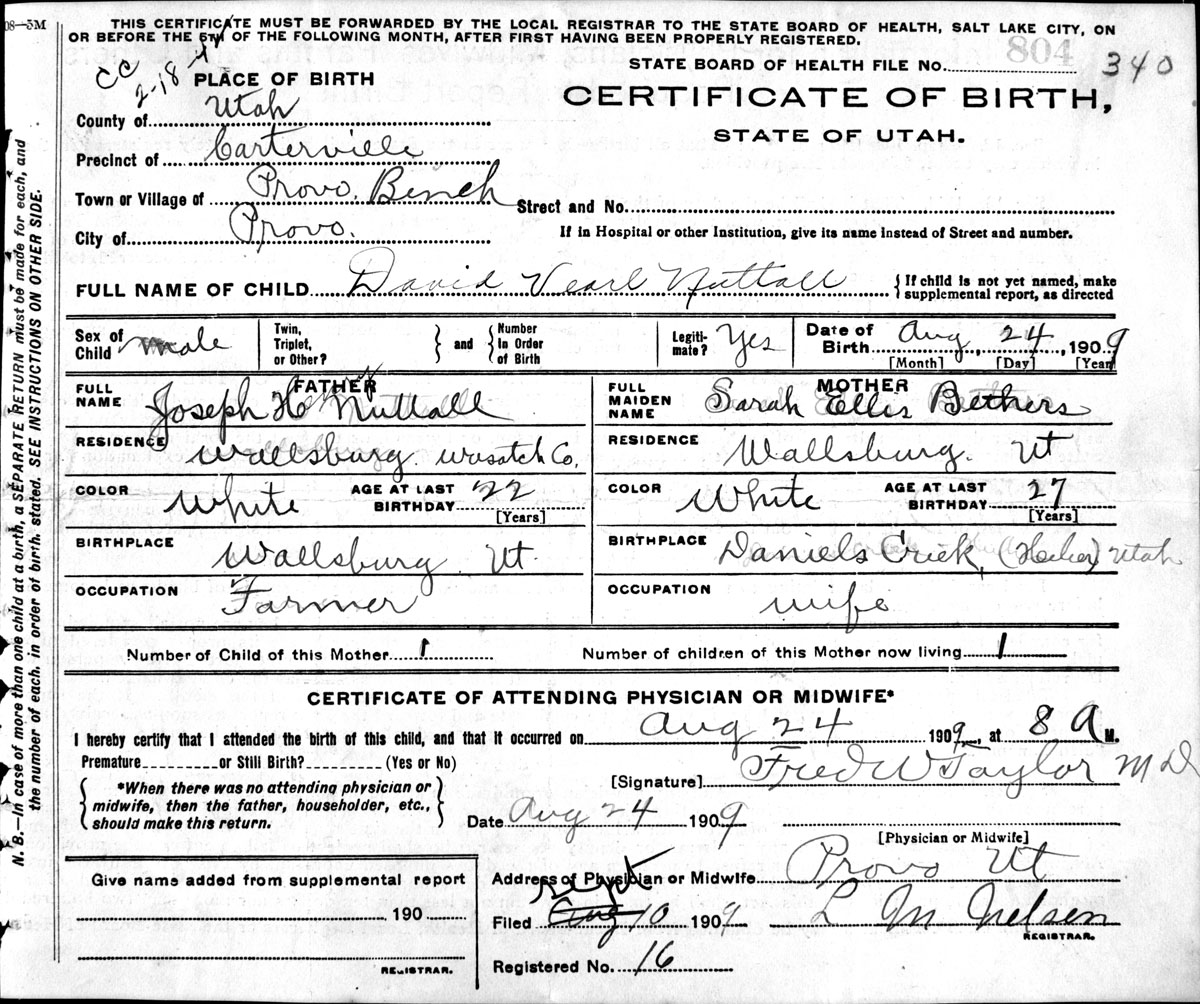 08—5M
THIS CERTIFICATE MUST BE FORWARDED BY THE LOCAL REGISTRAR TO THE STATE BOARD OF HEALTH, SALT LAKE CITY, ON
OR BEFORE THE 5TH OF THE FOLLOWING MONTH, AFTER FIRST HAVING BEEN PROPERLY REGISTERED.
804
STATE BOARD OF HEALTH FILE NO. 340
CC 2-18
PLACE OF BIRTH
CERTIFICATE OF BIRTH,
STATE OF UTAH.
County of Utah
Precinct of Carterville
Town or Village of Provo Bench
Street and No.
City of Provo.
If in Hospital or other Institution, give its name instead of Street and number.
FULL NAME OF CHILD David Vearl Nuttall
{If child is not yet named, make
supplemental report, as directed
Sex of Child male
Twin, Triplet, or Other?
} and {
Number In Order of Birth
Legiti-mate? Yes
Date of Birth Aug 24, 1909
[Month] [Day] [Year]
FATHER
FULL NAME Joseph H Nuttall
MOTHER
FULL MAIDEN NAME Sarah Ellis Bethers
RESIDENCE Wallsburg. Wasatch Co.
RESIDENCE Wallsburg. Ut
COLOR White AGE AT LAST BIRTHDAY 22 [Years]
COLOR White AGE AT LAST BIRTHDAY 27 [Years]
BIRTHPLACE Wallsburg Ut.
BIRTHPLACE Daniels Crick, (Heber) Utah
OCCUPATION Farmer
OCCUPATION wife
Number of Child of this Mother 1
Number of children of this Mother now living 1
CERTIFICATE OF ATTENDING PHYSICIAN OR MIDWIFE*
I hereby certify that I attended the birth of this child, and that it occurred on Aug 24 1909, at 8 A M.
Premature or Still Birth? (Yes or No)
[Signature] Fred W Taylor M D
{*When there was no attending physician or
midwife, then the father, householder, etc.,
should make this return.}
Date Aug 24 1909
[Physician or Midwife]
Give name added from supplemental report
190
REGISTRAR.
Address of Physician or Midwife Provo Ut
Filed Aug Sept 10 1909 L M Nelson
REGISTRAR.
Registered No. 16
N. B.—In case of more than one child at a birth, a SEPARATE RETURN must be made for each, and
the number of each, in order of birth, stated. SEE INSTRUCTIONS ON OTHER SIDE.